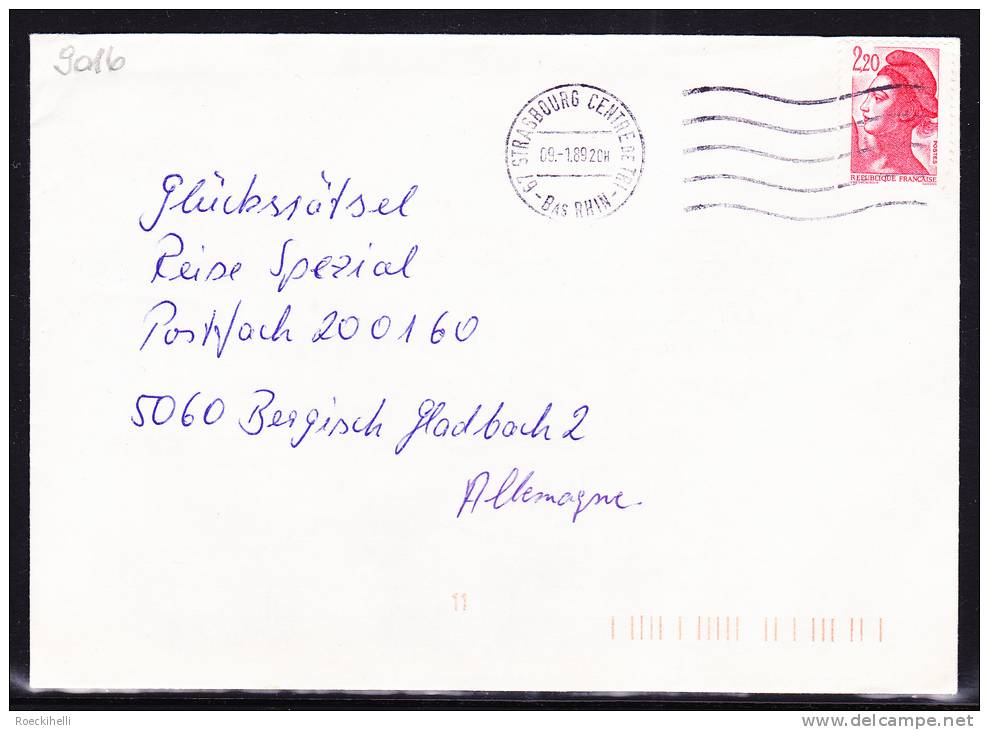 9016
67 STRASBOURG CENTRE DE TRI
09.-1.89 20H
- BAS RHIN -
2,20
POSTES
REPUBLIQUE FRANCAISE
Glücksrätsel
Reise Spezial
Postfach 200160
5060 Bergisch Gladbach 2
Allemagne
11
Roeckihelli
www.delcampe.net